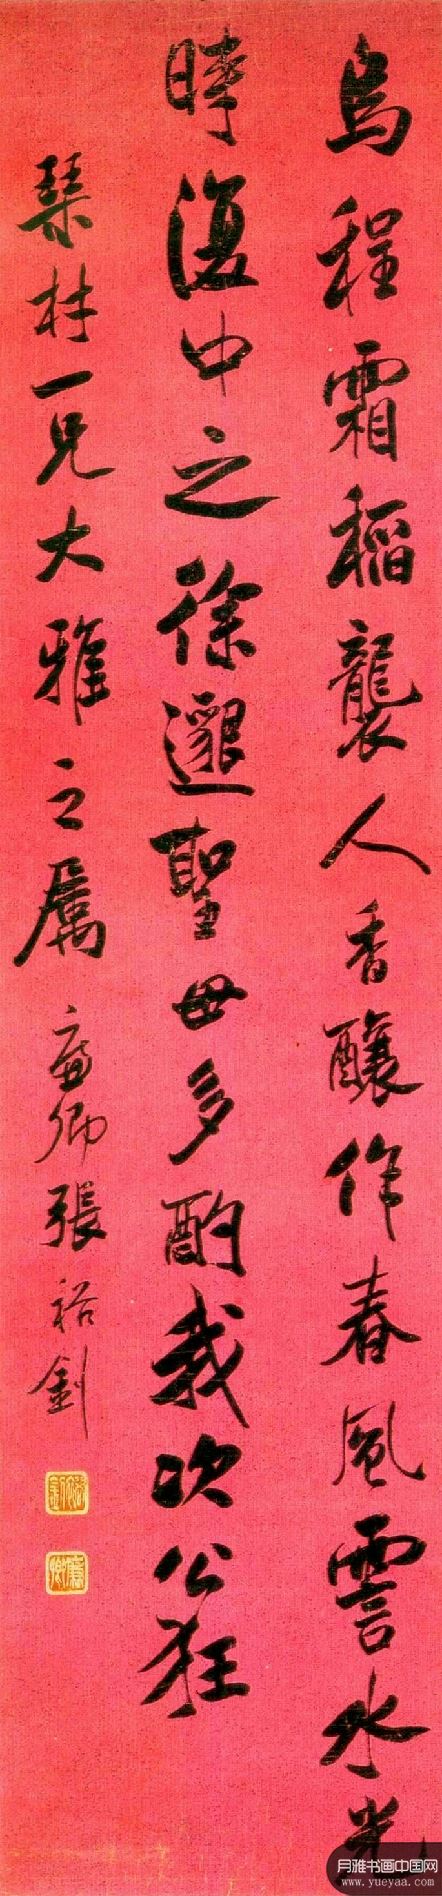 烏程霜稻襲人香釀作春風霅水光
時復中之徐邈聖毋多酌我次公狂
琹材一兄大雅之屬 廉卿張裕釗
廉卿
月雅书画中国网
www.yueyaa.com